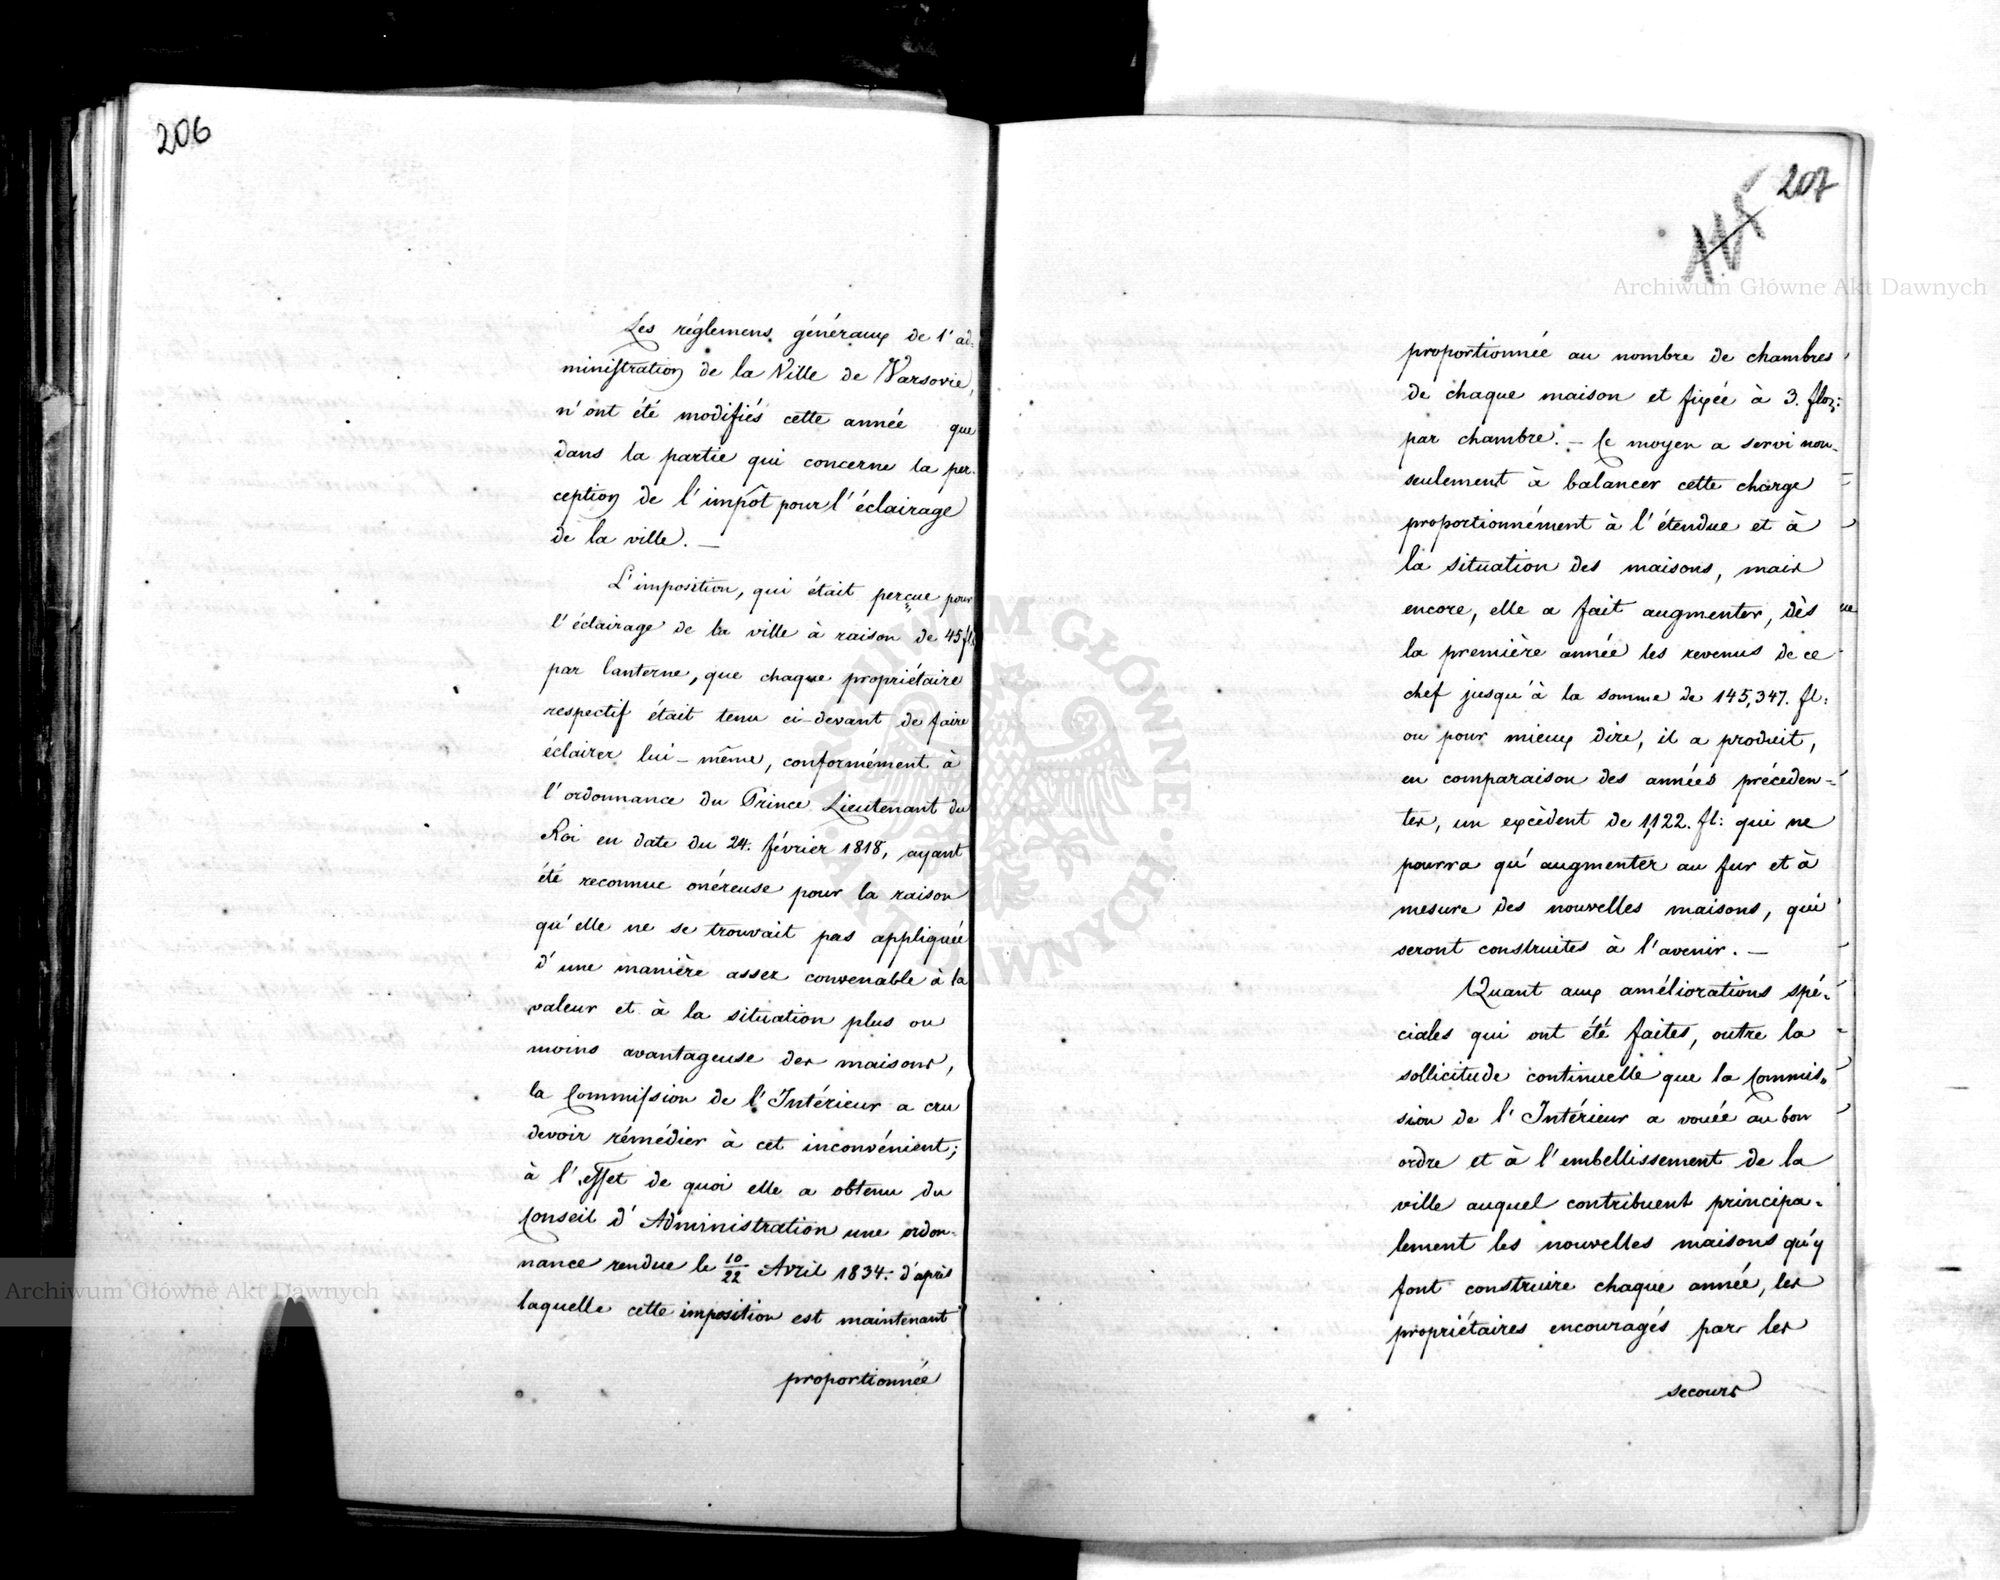 206
Les réglemens généraux de l'ad-
ministration de la Ville de Varsovie,
n'ont été modifiés cette année que
dans la partie qui concerne la per-
ception de l'impôt pour l'éclairage
de la ville. —
L'imposition, qui était perçue pour
l'éclairage de la ville à raison de 45 fl:
par lanterne, que chaque propriétaire
respectif était tenu ci-devant de faire
éclairer lui-même, conformément à
l'ordonnance du Prince Lieutenant du
Roi en date du 24. février 1818, ayant
été reconnue onéreuse pour la raison
qu'elle ne se trouvait pas appliquée
d'une manière assez convenable à la
valeur et à la situation plus ou
moins avantageuse des maisons,
la Commission de l'Intérieur a cru
devoir rémédier à cet inconvénient;
à l'effet de quoi elle a obtenu du
Conseil d'Administration une ordon-
nance rendue le 10/22 Avril 1834. d'après
laquelle cette imposition est maintenant
proportionnée
207
proportionnée au nombre de chambres
de chaque maison et fixée à 3. flor:
par chambre. — Ce moyen a servi non-
seulement à balancer cette charge
proportionnément à l'étendue et à
la situation des maisons, mais
encore, elle a fait augmenter, dès
la première année les revenus de ce
chef jusqu'à la somme de 145,347. fl:
ou pour mieux dire, il a produit,
en comparaison des années précéden-
tes, un excèdent de 1,122. fl: qui ne
pourra qu'augmenter au fur et à
mesure des nouvelles maisons, qui
seront construites à l'avenir. —
Quant aux améliorations spé-
ciales qui ont été faites, outre la
sollicitude continuelle que la Commis-
sion de l'Intérieur a vouée au bon
ordre et à l'embellissement de la
ville auquel contribuent principa-
lement les nouvelles maisons qu'y
font construire chaque année, les
propriétaires encouragés par les
secours
Archiwum Główne Akt Dawnych
Archiwum Główne Akt Dawnych
ARCHIWUM GŁÓWNE AKT DAWNYCH